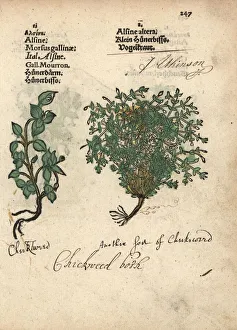 247
1.
Alsine.
Morsus gallinæ
Ital. Alsine.
Gall. Mouron.
Hünerdärm.
Hünerbiss.
2.
Alsine altera.
Klein Hünerbiss.
Vogelkraut.
J. Atkinson
Chickweed
Another sort of Chickweed
Chickweed both